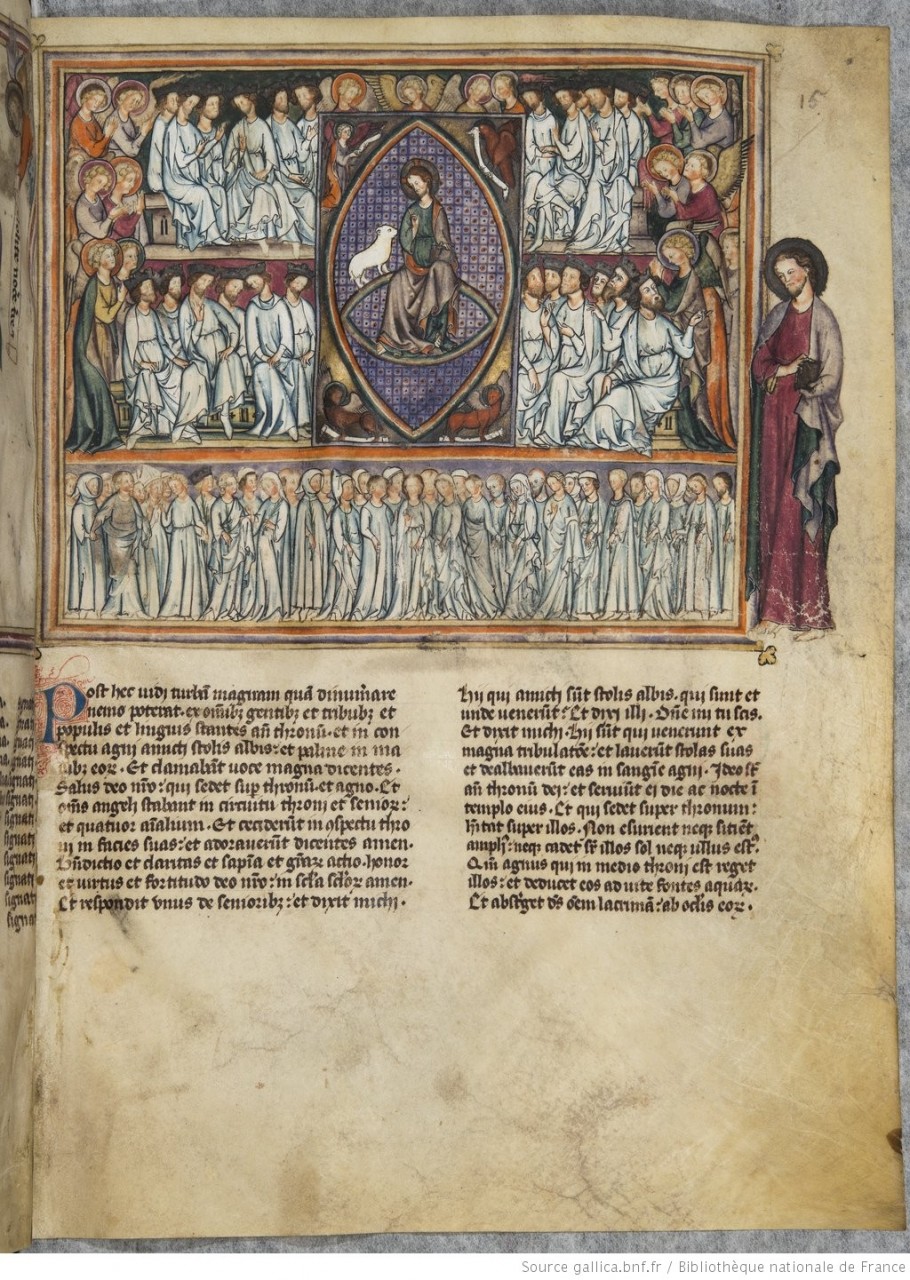 15
Post hec uidi turbā magnam quā dinumerare
nemo poterat. ex om̄ibꝫ gentibꝫ et tribubꝫ et
populis et linguis stantes an̄ thronū. et in con
spectu agni amicti stolis albis: et palme in ma
nibꝫ eoꝝ. Et clamabāt uoce magna dicentes.
Salus deo nr̄o: qui sedet sup̄ thronū. et agno. Et
om̄s angeli stabant in circuitu throni et senioꝝ:
et quatuor aīalium. Et ceciderūt in ꝯspectu thro
ni in facies suas: et adorauerūt dicentes amen.
Bn̄dictio et claritas et sapīa et gr̄aꝝ actio. honor
et uirtus et fortitudo deo nr̄o: in sc̄la sc̄loꝝ amen.
Et respondit vnus de senioribꝫ: et dixit michi.
Hii qui amicti sūt stolis albis. qui sunt et
unde uenerūt? Et dixi illi. Dn̄e mi tu scis.
Et dixit michi. Hii sūt qui uenerunt ex
magna tribulatōe: et lauerūt stolas suas
et dealbauerūt eas in sangīe agni. Ideo st̄
an̄ thronū dei: et seruiūt ei die ac nocte ī
templo eius. Et qui sedet super thronum:
h̄itat super illos. Non esurient neqꝫ sitiēt
ampliꝰ: neqꝫ cadet sr̄ illos sol neqꝫ ullus estꝰ.
Qm̄ agnus qui in medio throni est reget
illos: et deducet eos ad uite fontes aquaꝝ.
Et abstꝰget ds̄ om̄em lacrimā: ab oclis eoꝝ.
Source gallica.bnf.fr / Bibliothèque nationale de France